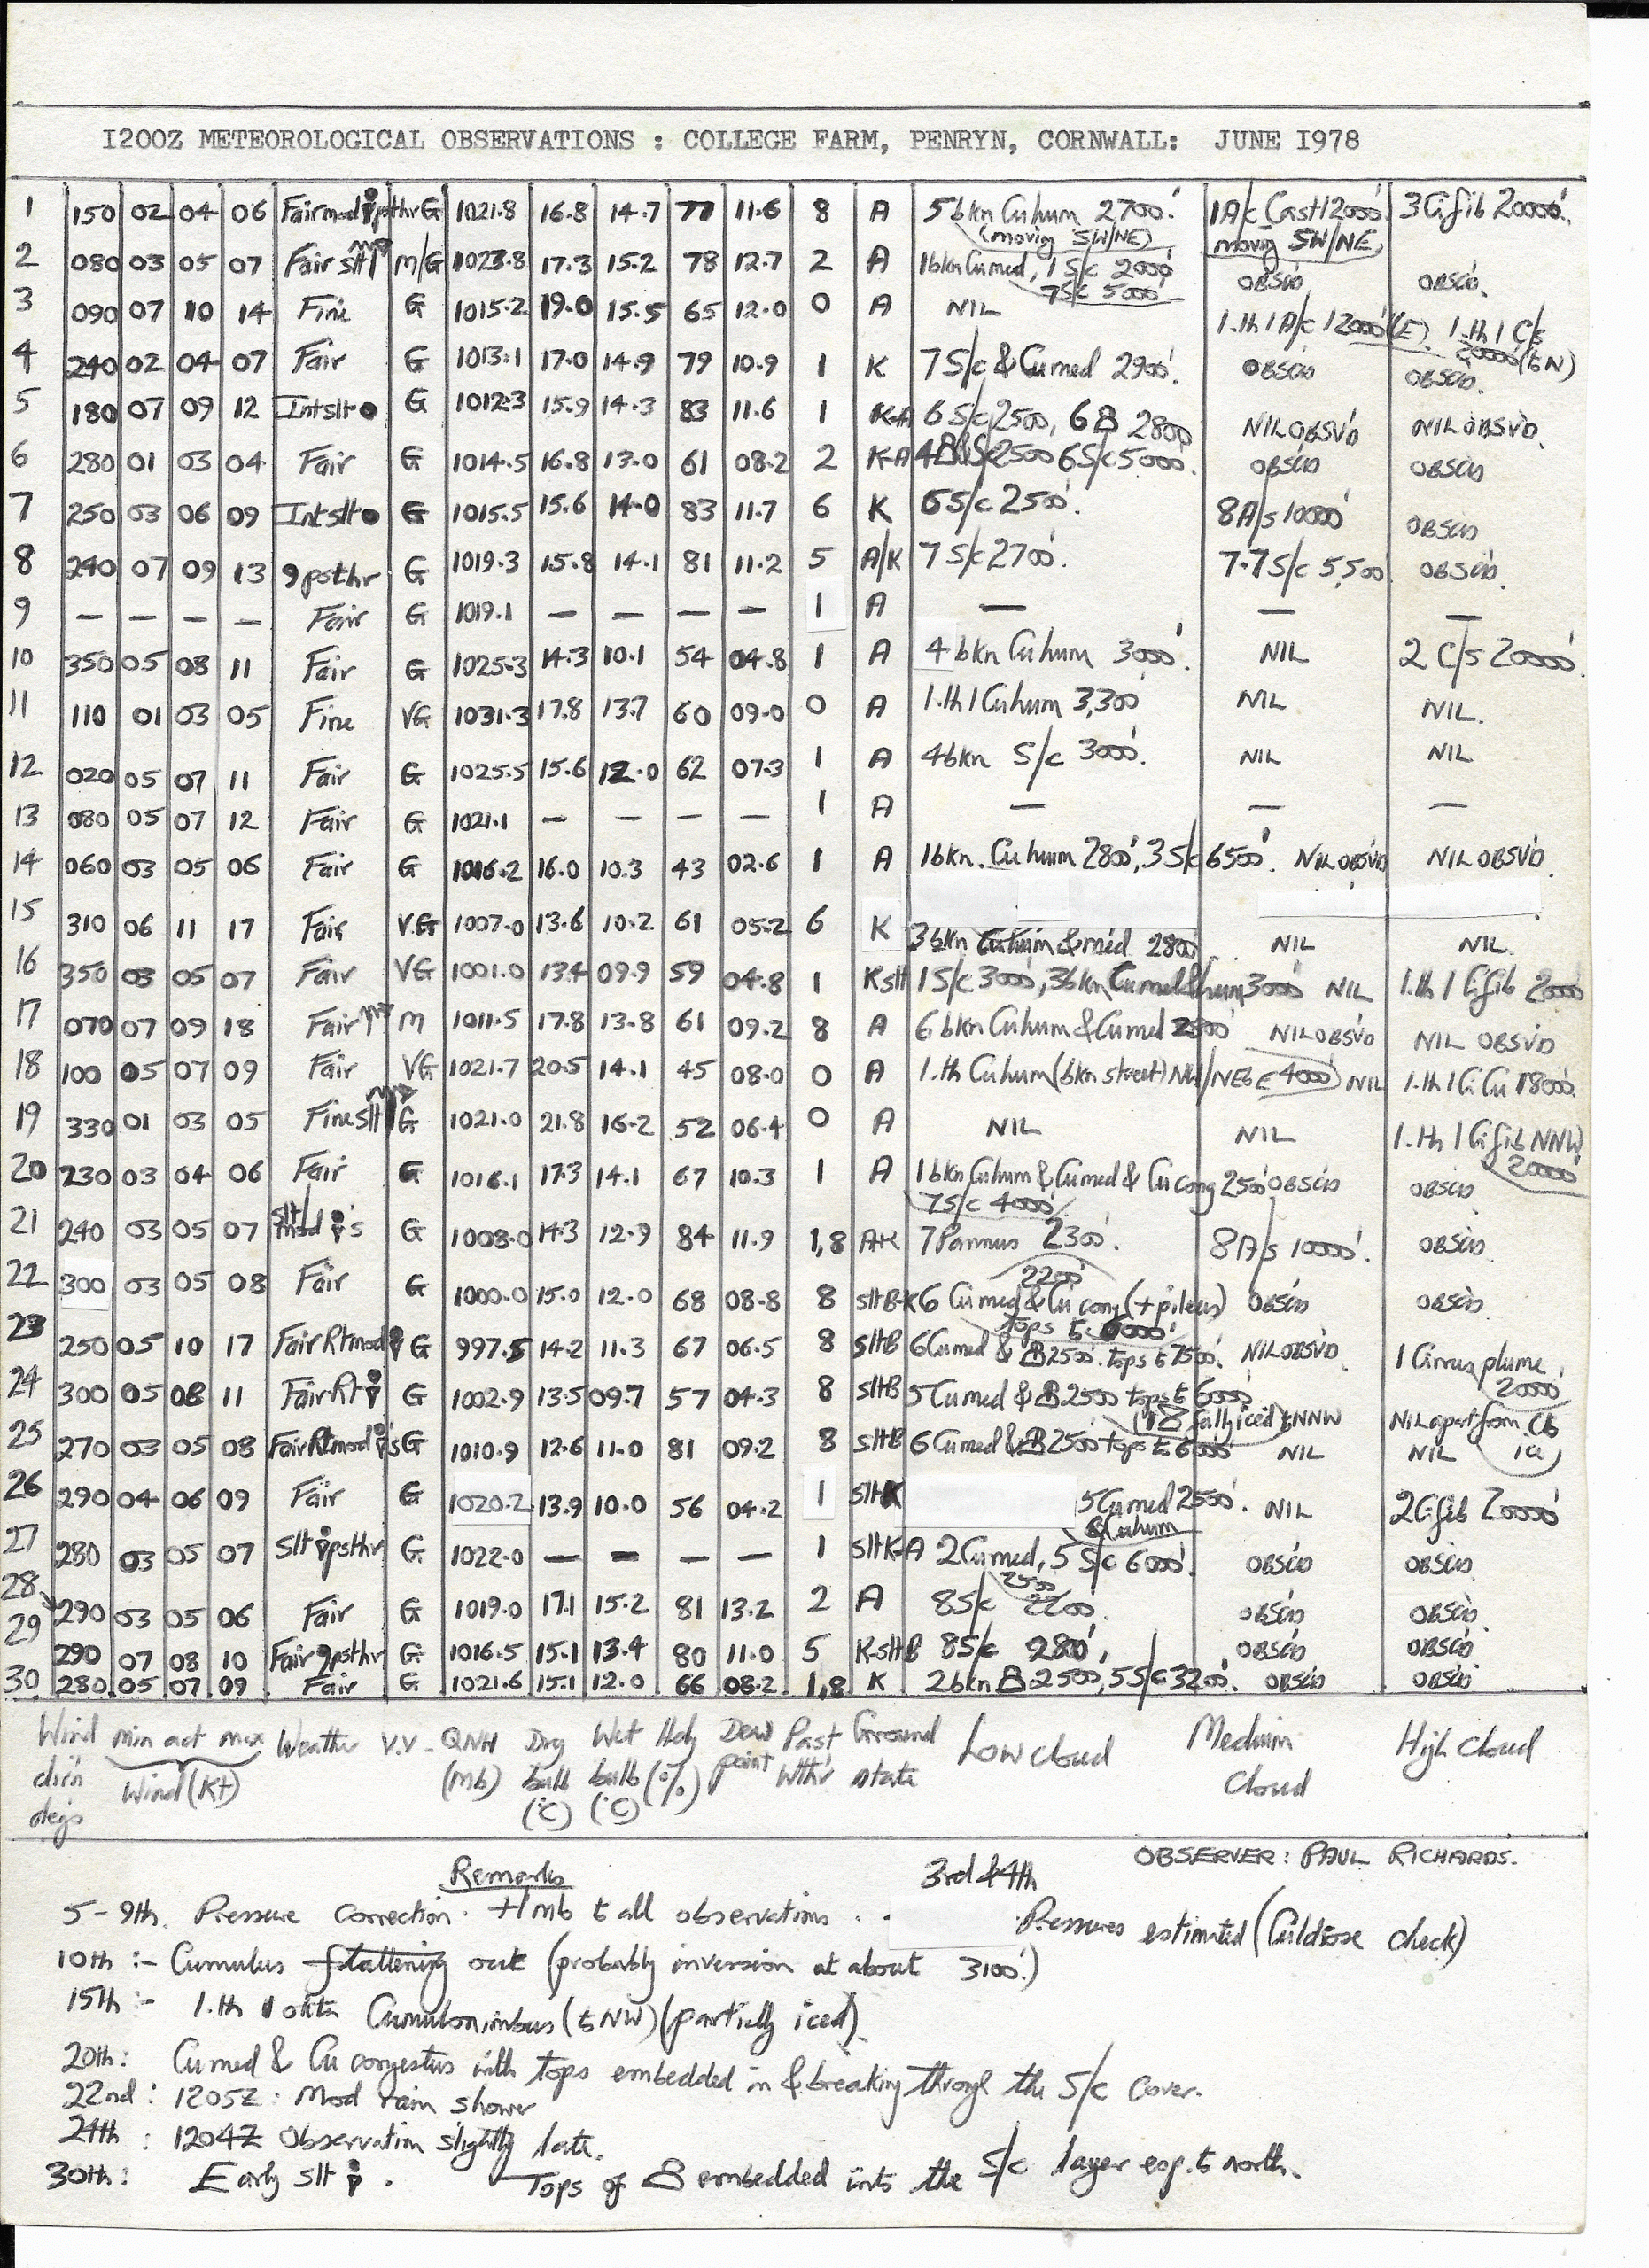 I200Z METEOROLOGICAL OBSERVATIONS : COLLEGE FARM, PENRYN, CORNWALL: JUNE I978
1 150 02 04 06 Fair mod psthr G 1021.8 16.8 14.7 77 11.6 8 A 5 bkn Cu hum 2700'. (moving SW/NE) 1 A/c Cast 12000'. moving SW/NE, 3 Ci fib 20000'.
2 080 03 05 07 Fair slt M/G 1023.8 17.3 15.2 78 12.7 2 A 1 bkn Cu med, 1 S/c 2000' 7 S/c 5000' OBSCD OBSCD.
3 090 07 10 14 Fine G 1015.2 19.0 15.5 65 12.0 0 A NIL 1.th 1 A/c 12000' (E). 1.th 1 C/s 20000' (to N)
4 240 02 04 07 Fair G 1013.1 17.0 14.9 79 10.9 1 K 7 S/c & Cu med 2900'. OBSCD OBSCD.
5 180 07 09 12 Int slt ● G 1012.3 15.9 14.3 83 11.6 1 K-A 6 S/c 2500, 6 2800 NIL OBSVD NIL OBSVD.
6 280 01 03 04 Fair G 1014.5 16.8 13.0 61 08.2 2 K-A 4 2500 6 S/c 5000'. OBSCD OBSCD
7 250 03 06 09 Int slt ● G 1015.5 15.6 14.0 83 11.7 6 K 6 S/c 2500'. 8 A/s 10000' OBSCD
8 240 07 09 13 9 psthr G 1019.3 15.8 14.1 81 11.2 5 A/K 7 S/c 2700'. 7.7 S/c 5,500' OBSCD.
9 — — — — Fair G 1019.1 — — — — 1 A — — —
10 350 05 08 11 Fair G 1025.3 14.3 10.1 54 04.8 1 A 4 bkn Cu hum 3000'. NIL 2 C/s 20000'.
11 110 01 03 05 Fine VG 1031.3 17.8 13.7 60 09.0 0 A 1.th 1 Cu hum 3,300' NIL NIL.
12 020 05 07 11 Fair G 1025.5 15.6 12.0 62 07.3 1 A 4 bkn S/c 3000'. NIL NIL
13 080 05 07 12 Fair G 1021.1 — — — — 1 A — — —
14 060 03 05 06 Fair G 1016.2 16.0 10.3 43 02.6 1 A 1 bkn. Cu hum 2800', 3 S/c 6500'. NIL OBSVD NIL OBSVD.
15 310 06 11 17 Fair V.G 1007.0 13.6 10.2 61 05.2 6 K 3 bkn Cu hum & med 2800 NIL NIL.
16 350 03 05 07 Fair VG 1001.0 13.4 09.9 59 04.8 1 K slt 1 S/c 3000', 3 bkn Cu med & hum 3000' NIL 1.th 1 Ci fib 20000'
17 070 07 09 18 Fair M 1011.5 17.8 13.8 61 09.2 8 A 6 bkn Cu hum & Cu med NIL OBSVD NIL OBSVD
18 100 05 07 09 Fair VG 1021.7 20.5 14.1 45 08.0 0 A 1.th Cu hum (bkn street) NW/NE 4000' NIL 1.th 1 Ci Cu 18000'.
19 330 01 03 05 Fine slt G 1021.0 21.8 16.2 52 06.4 0 A NIL NIL 1.th 1 Ci fib NNW 20000'
20 230 03 04 06 Fair G 1016.1 17.3 14.1 67 10.3 1 A 1 bkn Cu hum & Cu med & Cu cong 2500' 7 S/c 4000' OBSCD OBSCD
21 240 03 05 07 slt/mod 's G 1008.0 14.3 12.9 84 11.9 1,8 A-K 7 Pannus 2300'. 8 A/s 10000'. OBSCD
22 300 03 05 08 Fair G 1000.0 15.0 12.0 68 08.8 8 slt B-K 6 Cu med & Cu cong (+ pileus) 2200' tops to 6000' OBSCD OBSCD
23 250 05 10 17 Fair Rt mod G 997.5 14.2 11.3 67 06.5 8 slt B 6 Cu med & 2500'. tops to 7500'. NIL OBSVD. 1 Cirrus plume, 20000'
24 300 05 08 11 Fair Rt G 1002.9 13.5 09.7 57 04.3 8 slt B 5 Cu med & 2500 tops to 6000' (fully iced) to NNW NIL apart from Cb ice
25 270 03 05 08 Fair Rt mod 's G 1010.9 12.6 11.0 81 09.2 8 slt B 6 Cu med & 2500 tops to 6000' NIL NIL
26 290 04 06 09 Fair G 1020.2 13.9 10.0 56 04.2 1 slt K 5 Cu med 2500'. & Cu hum NIL 2 Ci fib 20000'
27 280 03 05 07 Slt psthr G 1022.0 — — — — 1 slt K-A 2 Cu med, 5 S/c 6000'. 2500 OBSCD OBSCD
28 290 03 05 06 Fair G 1019.0 17.1 15.2 81 13.2 2 A 8 S/c 2200'. OBSCD OBSCD.
29 290 07 08 10 Fair 9 psthr G 1016.5 15.1 13.4 80 11.0 5 K-slt B 8 S/c 2800', OBSCD OBSCD
30 280 05 07 09 Fair G 1021.6 15.1 12.0 66 08.2 1,8 K 2 bkn 2500, 5 S/c 3200'. OBSCD OBSCD
Wind dir'n degs min act max Wind (Kt) Weather V.V. QNH (Mb) Dry bulb (°C) Wet bulb (°C) Hdy (%) Dew point Past Wth'r Ground state Low cloud Medium Cloud High Cloud
OBSERVER: PAUL RICHARDS.
Remarks
5-9th. Pressure correction. +1 mb to all observations. 3rd & 4th Pressures estimated (Culdrose check)
10th :- Cumulus flattening out (probably inversion at about 3100'.)
15th :- 1.th 1 okta Cumulonimbus (to NW) (partially iced).
20th: Cu med & Cu congestus with tops embedded in & breaking through the S/c cover.
22nd: 1205Z: Mod rain shower
24th: 1204Z Observation slightly late.
30th: Early slt . Tops of embedded into the S/c layer esp. to north.